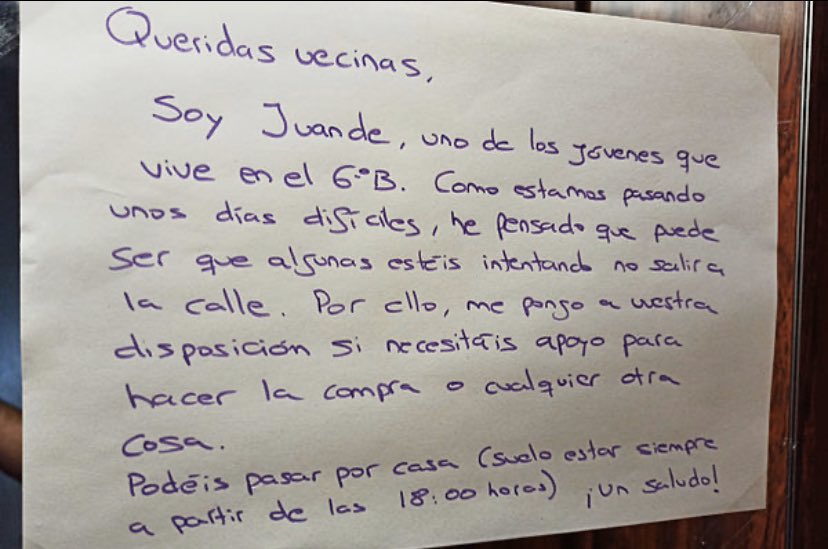 Queridas vecinas,
Soy Juande, uno de los jóvenes que
vive en el 6.ºB. Como estamos pasando
unos días difíciles, he pensado que puede
ser que algunas estéis intentando no salir a
la calle. Por ello, me pongo a vuestra
disposición si necesitáis apoyo para
hacer la compra o cualquier otra
cosa.
Podéis pasar por casa (suelo estar siempre
a partir de las 18:00 horas) ¡Un saludo!